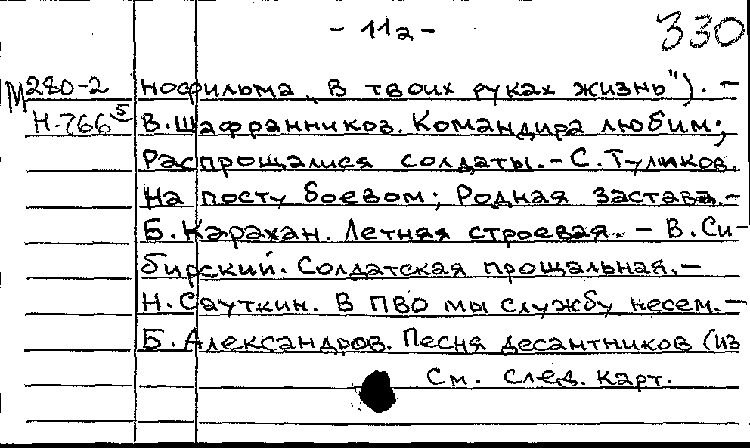 - 11а -
330
М280-2 нофильма „В твоих руках жизнь"). -
Н-766⁵ В. Шафранников. Командира любим;
Распрощались солдаты. - С. Туликов.
На посту боевом; Родная застава. -
Б. Карахан. Летняя строевая. - В. Си-
бирский. Солдатская прощальная. -
Н. Сауткин. В ПВО мы службу несем. -
Б. Александров. Песня десантников (из
См. след. карт.